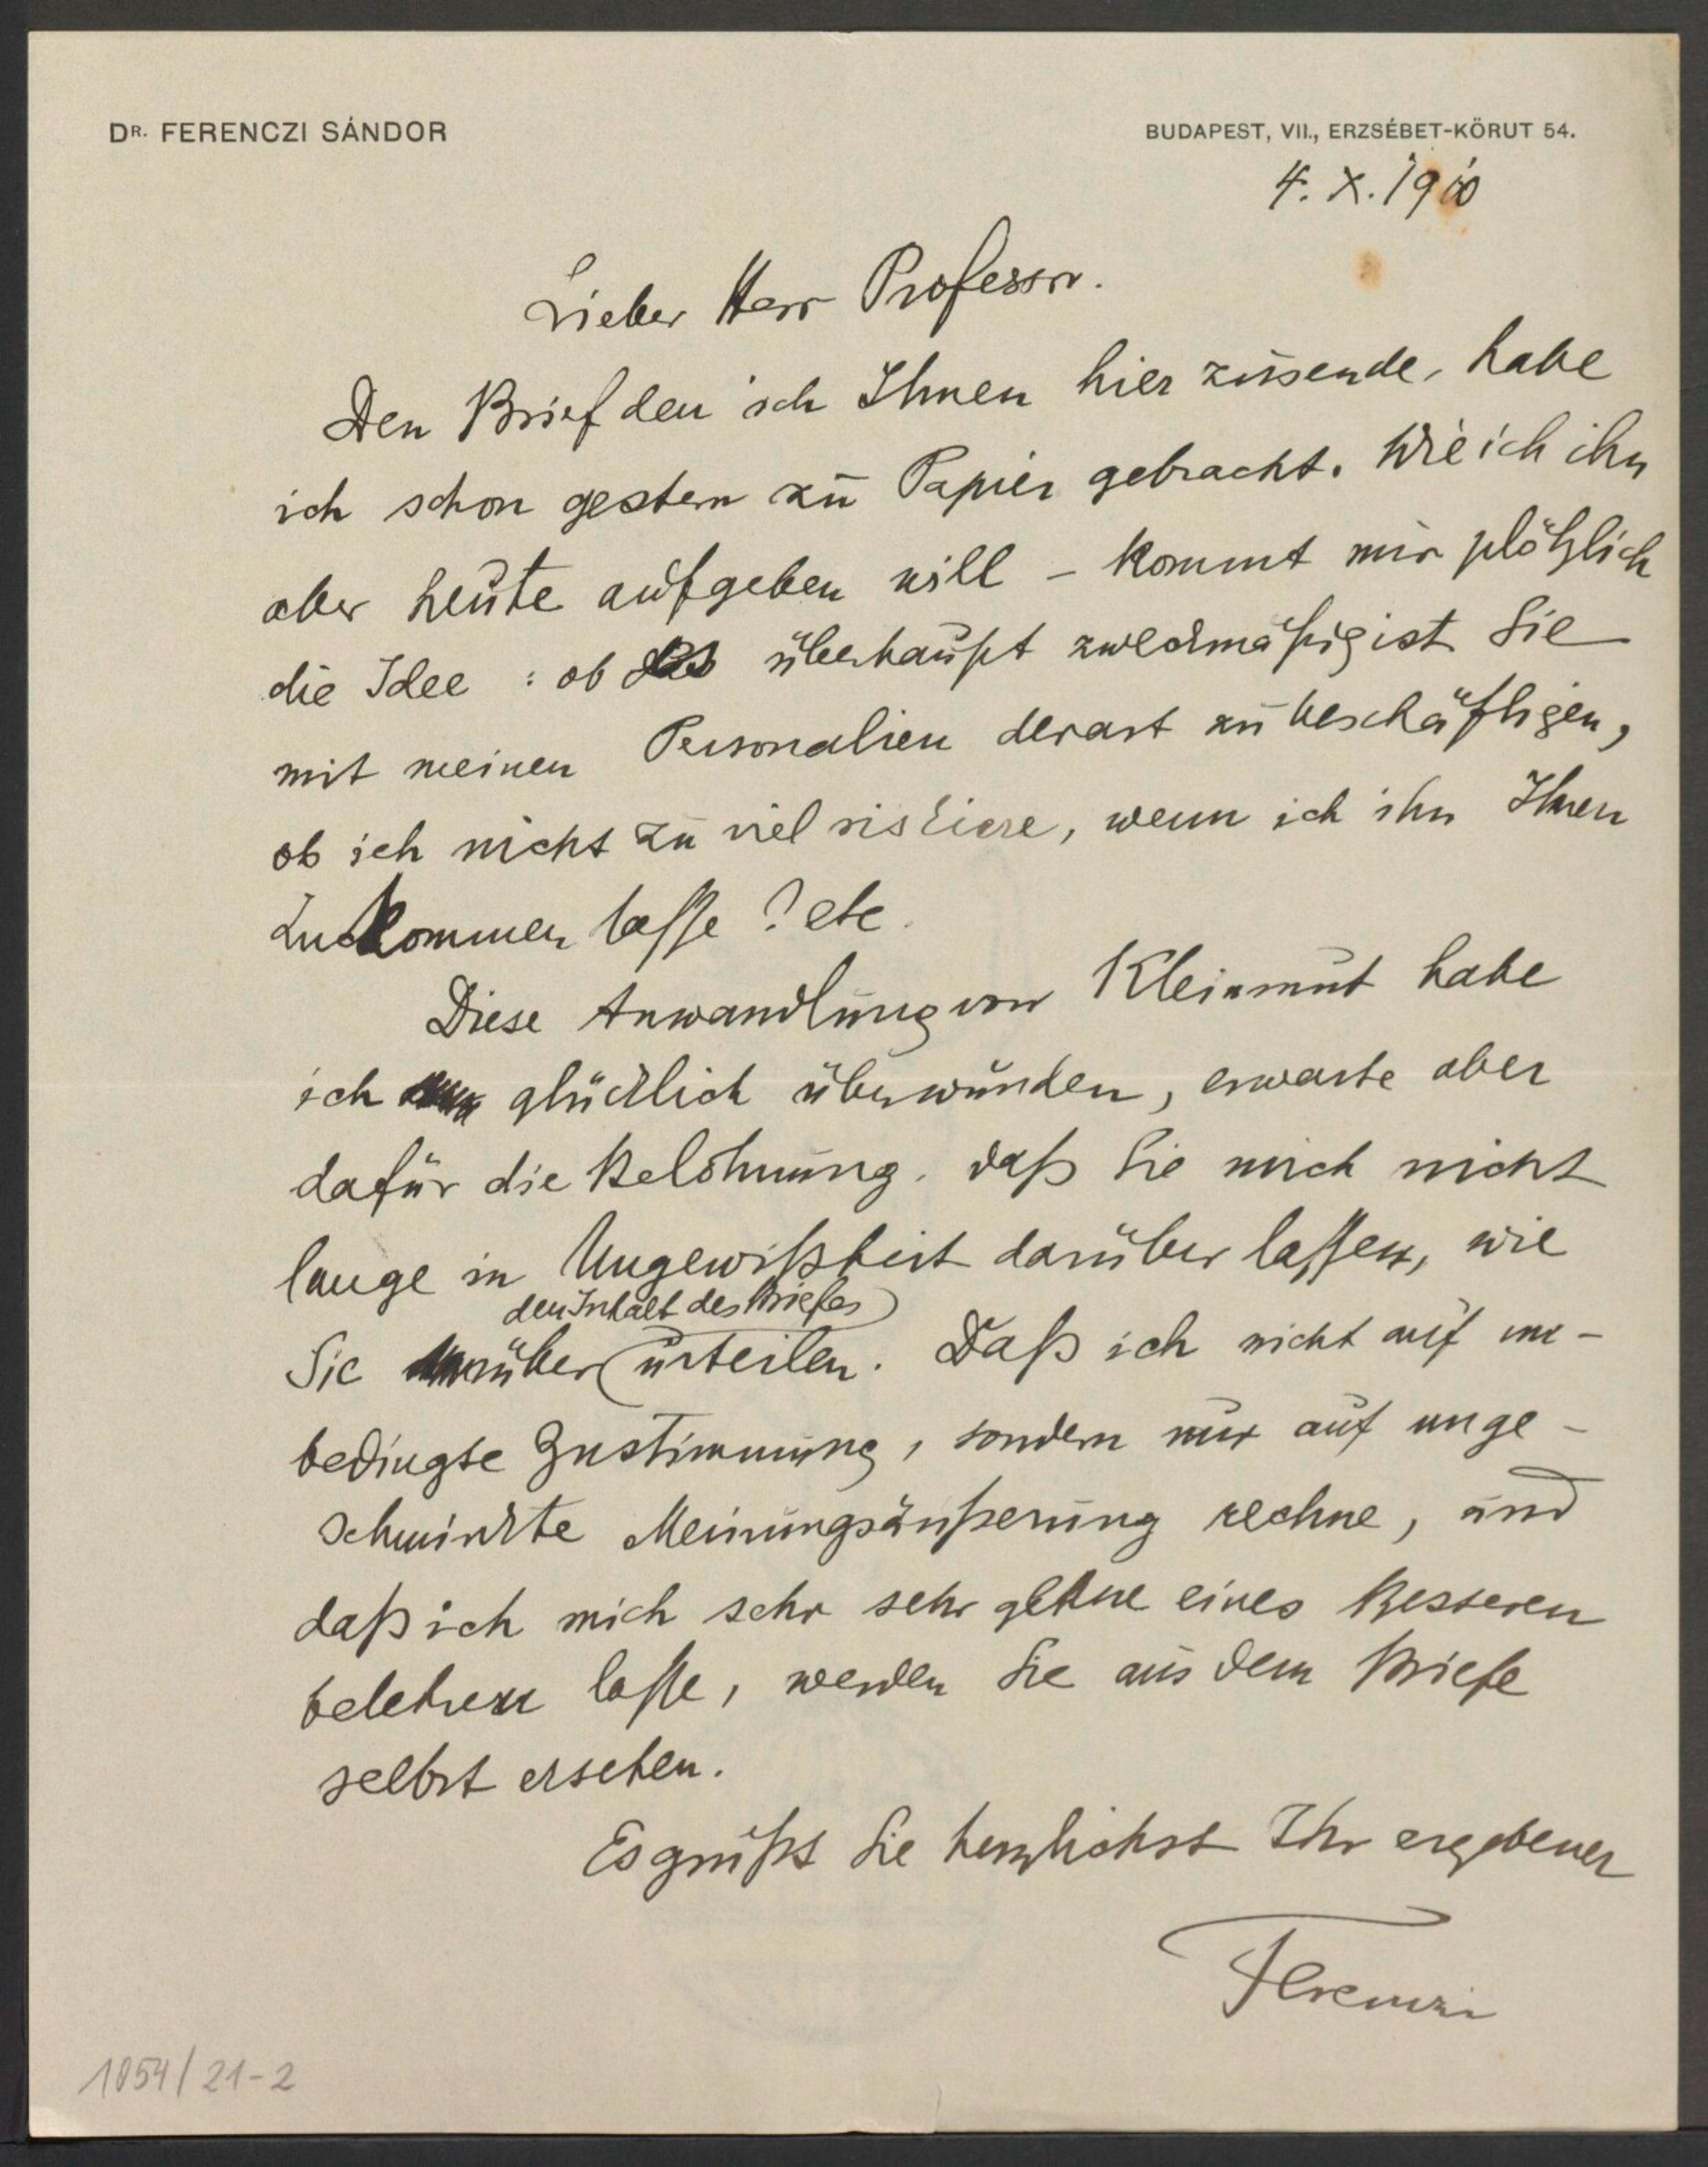 DR. FERENCZI SÁNDOR
BUDAPEST, VII., ERZSÉBET-KÖRUT 54.
4. X. 1910
Lieber Herr Professor.
Den Brief den ich Ihnen hier zusende, habe
ich schon gestern zu Papier gebracht. Wie ich ihn
aber heute aufgeben will – kommt mir plötzlich
die Idee : ob es überhaupt zweckmäßig ist Sie
mit meinen Personalien derart zu beschäftigen,
ob ich nicht zu viel riskiere, wenn ich ihn Ihnen
zukommen lasse ? etc.
Diese Anwandlung von Kleinmut habe
ich glücklich überwunden, erwarte aber
dafür die Belohnung. daß Sie mich nicht
lange in Ungewißheit darüber lassen, wie
den Inhalt des Briefes
Sie über urteilen. Daß ich nicht auf un-
bedingte Zustimmung, sondern nur auf unge-
schminkte Meinungsäußerung rechne, und
daß ich mich sehr sehr gerne eines Besseren
belehren lasse, werden Sie aus dem Briefe
selbst ersehen.
Es grüßt Sie herzlichst Ihr ergebener
Ferenczi
1054/21-2